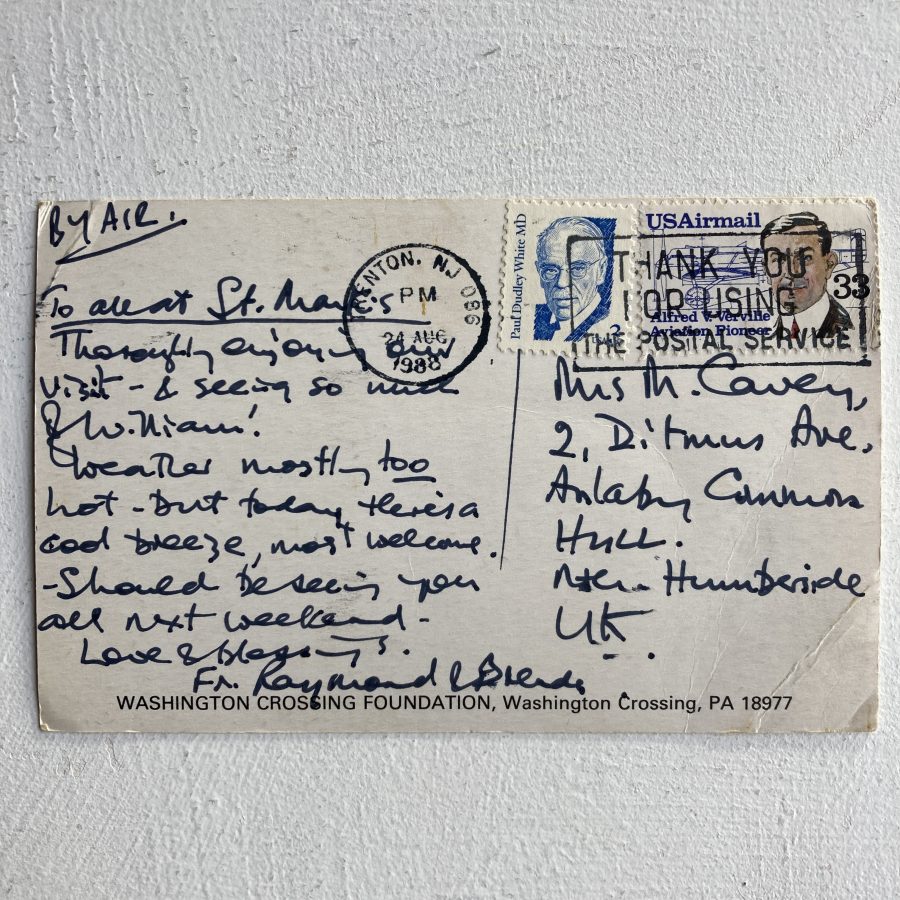 BY AIR.
To all at St. Mark's
Thoroughly enjoying our
visit - & seeing so much
of William!
Weather mostly too
hot - but today there's a
cool breeze, most welcome.
- Should be seeing you
all next weekend -
Love & blessings.
Fr. Raymond & Brenda
TRENTON, NJ 086
PM
24 AUG
1988
Paul Dudley White MD
USAirmail
33
Alfred V. Verville
Aviation Pioneer
THANK YOU
FOR USING
THE POSTAL SERVICE
Mrs M. Cavey,
2, Ditmus Ave,
Anlaby Common
Hull.
Nth. Humberside
UK
WASHINGTON CROSSING FOUNDATION, Washington Crossing, PA 18977